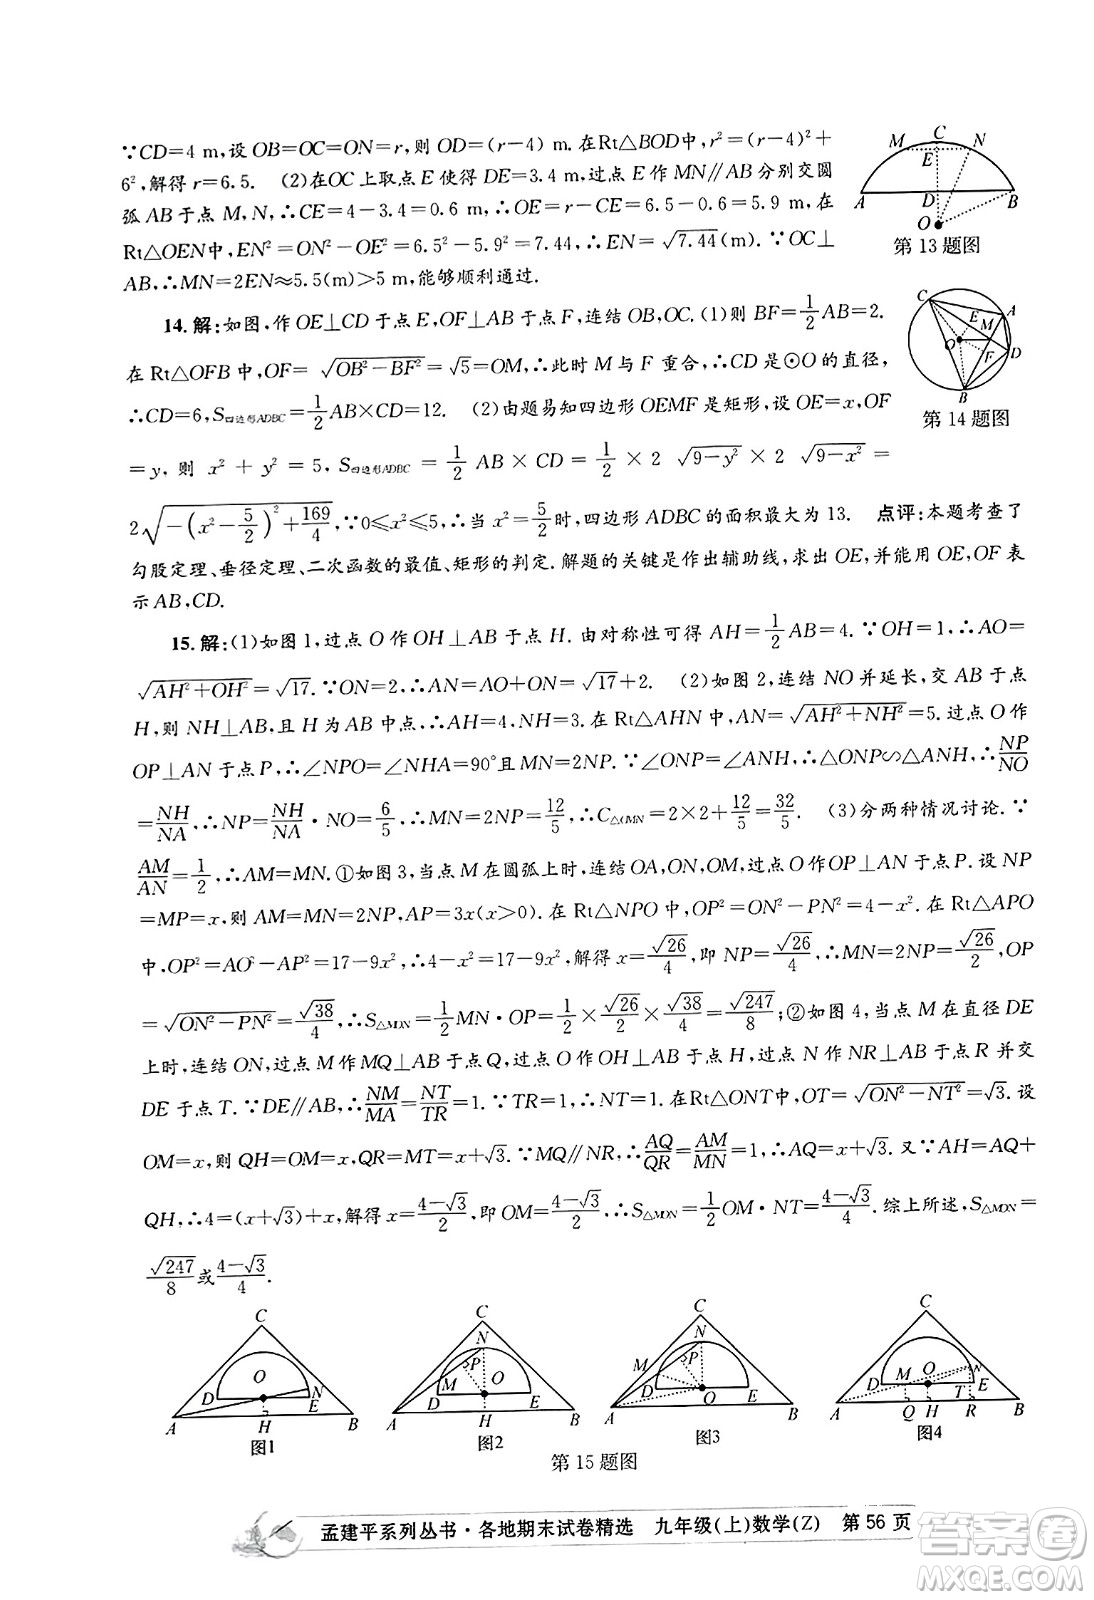 ∵CD=4 m,设 OB=OC=ON=r,则 OD=(r-4)m.在 Rt△BOD 中,r²=(r-4)²+
6²,解得 r=6.5. (2)在 OC 上取点 E 使得 DE=3.4 m,过点 E 作 MN∥AB 分别交圆
弧 AB 于点 M,N,∴CE=4-3.4=0.6 m,∴OE=r-CE=6.5-0.6=5.9 m,在
Rt△OEN 中,EN²=ON²-OE²=6.5²-5.9²=7.44,∴EN=√7.44(m).∵OC⊥
AB,∴MN=2EN≈5.5(m)>5 m,能够顺利通过.
M C N
E
A D B
O
第 13 题图
14.解:如图,作 OE⊥CD 于点 E,OF⊥AB 于点 F,连结 OB,OC.(1)则 BF=1/2AB=2.
在 Rt△OFB 中,OF=√(OB²-BF²)=√5=OM,∴此时 M 与 F 重合,∴CD 是⊙O 的直径,
∴CD=6,S四边形ADBC=1/2AB×CD=12. (2)由题易知四边形 OEMF 是矩形,设 OE=x,OF
=y,则 x²+y²=5,S四边形ADBC=1/2AB×CD=1/2×2√(9-y²)×2√(9-x²)=
2√(-(x²-5/2)²+169/4),∵0≤x²≤5,∴当 x²=5/2时,四边形 ADBC 的面积最大为 13. 点评:本题考查了
勾股定理、垂径定理、二次函数的最值、矩形的判定.解题的关键是作出辅助线,求出 OE,并能用 OE,OF 表
示 AB,CD.
C
E A
M
O
F D
B
第 14 题图
15.解:(1)如图 1,过点 O 作 OH⊥AB 于点 H.由对称性可得 AH=1/2AB=4.∵OH=1,∴AO=
√(AH²+OH²)=√17.∵ON=2,∴AN=AO+ON=√17+2. (2)如图 2,连结 NO 并延长,交 AB 于点
H,则 NH⊥AB,且 H 为 AB 中点,∴AH=4,NH=3.在 Rt△AHN 中,AN=√(AH²+NH²)=5.过点 O 作
OP⊥AN 于点 P,∴∠NPO=∠NHA=90°且∠ONP=∠ANH,∴△ONP∽△ANH,∴NP/NO
=NH/NA,∴NP=NH/NA·NO=6/5,∴MN=2NP=12/5,∴C△OMN=2+2+12/5=32/5. (3)分两种情况讨论.∵
AM/AN=1/2,∴AM=MN.①如图 3,当点 M 在圆弧上时,连结 OA,ON,OM,过点 O 作 OP⊥AN 于点 P.设 NP
=MP=x,则 AM=MN=2NP,AP=3x(x>0).在 Rt△NPO 中,OP²=ON²-PN²=4-x².在 Rt△APO
中,OP²=AO²-AP²=17-9x²,∴4-x²=17-9x²,解得 x=√26/4,即 NP=√26/4,∴MN=2NP=√26/2,OP
=√(ON²-PN²)=√38/4,∴S△MON=1/2MN·OP=1/2×√26/2×√38/4=√247/8;②如图 4,当点 M 在直径 DE
上时,连结 ON,过点 M 作 MQ⊥AB 于点 Q,过点 O 作 OH⊥AB 于点 H,过点 N 作 NR⊥AB 于点 R 并交
DE 于点 T.∵DE∥AB,∴NM/MA=NT/TR=1.∵TR=1,∴NT=1.在 Rt△ONT 中,OT=√(ON²-NT²)=√3.设
OM=x,则 QH=OM=x,QR=MT=x+√3.∵MQ∥NR,∴AQ/QR=AM/MN=1,∴AQ=QR=x+√3.又∵AH=AQ+
QH,∴4=(x+√3)+x,解得 x=(4-√3)/2,即 OM=(4-√3)/2,∴S△MON=1/2OM·NT=(4-√3)/4.综上所述,S△MON=
√247/8或(4-√3)/4.
C
O
D N
E
A H B
图1
C
N
P
M O
D E
A H B
图2
C
N
M P
D O E
A B
图3
C
O N
D M T E
A Q H R B
图4
第 15 题图
孟建平系列丛书·各地期末试卷精选 九年级(上)数学(Z) 第 56 页
答案圈
MXQE.COM